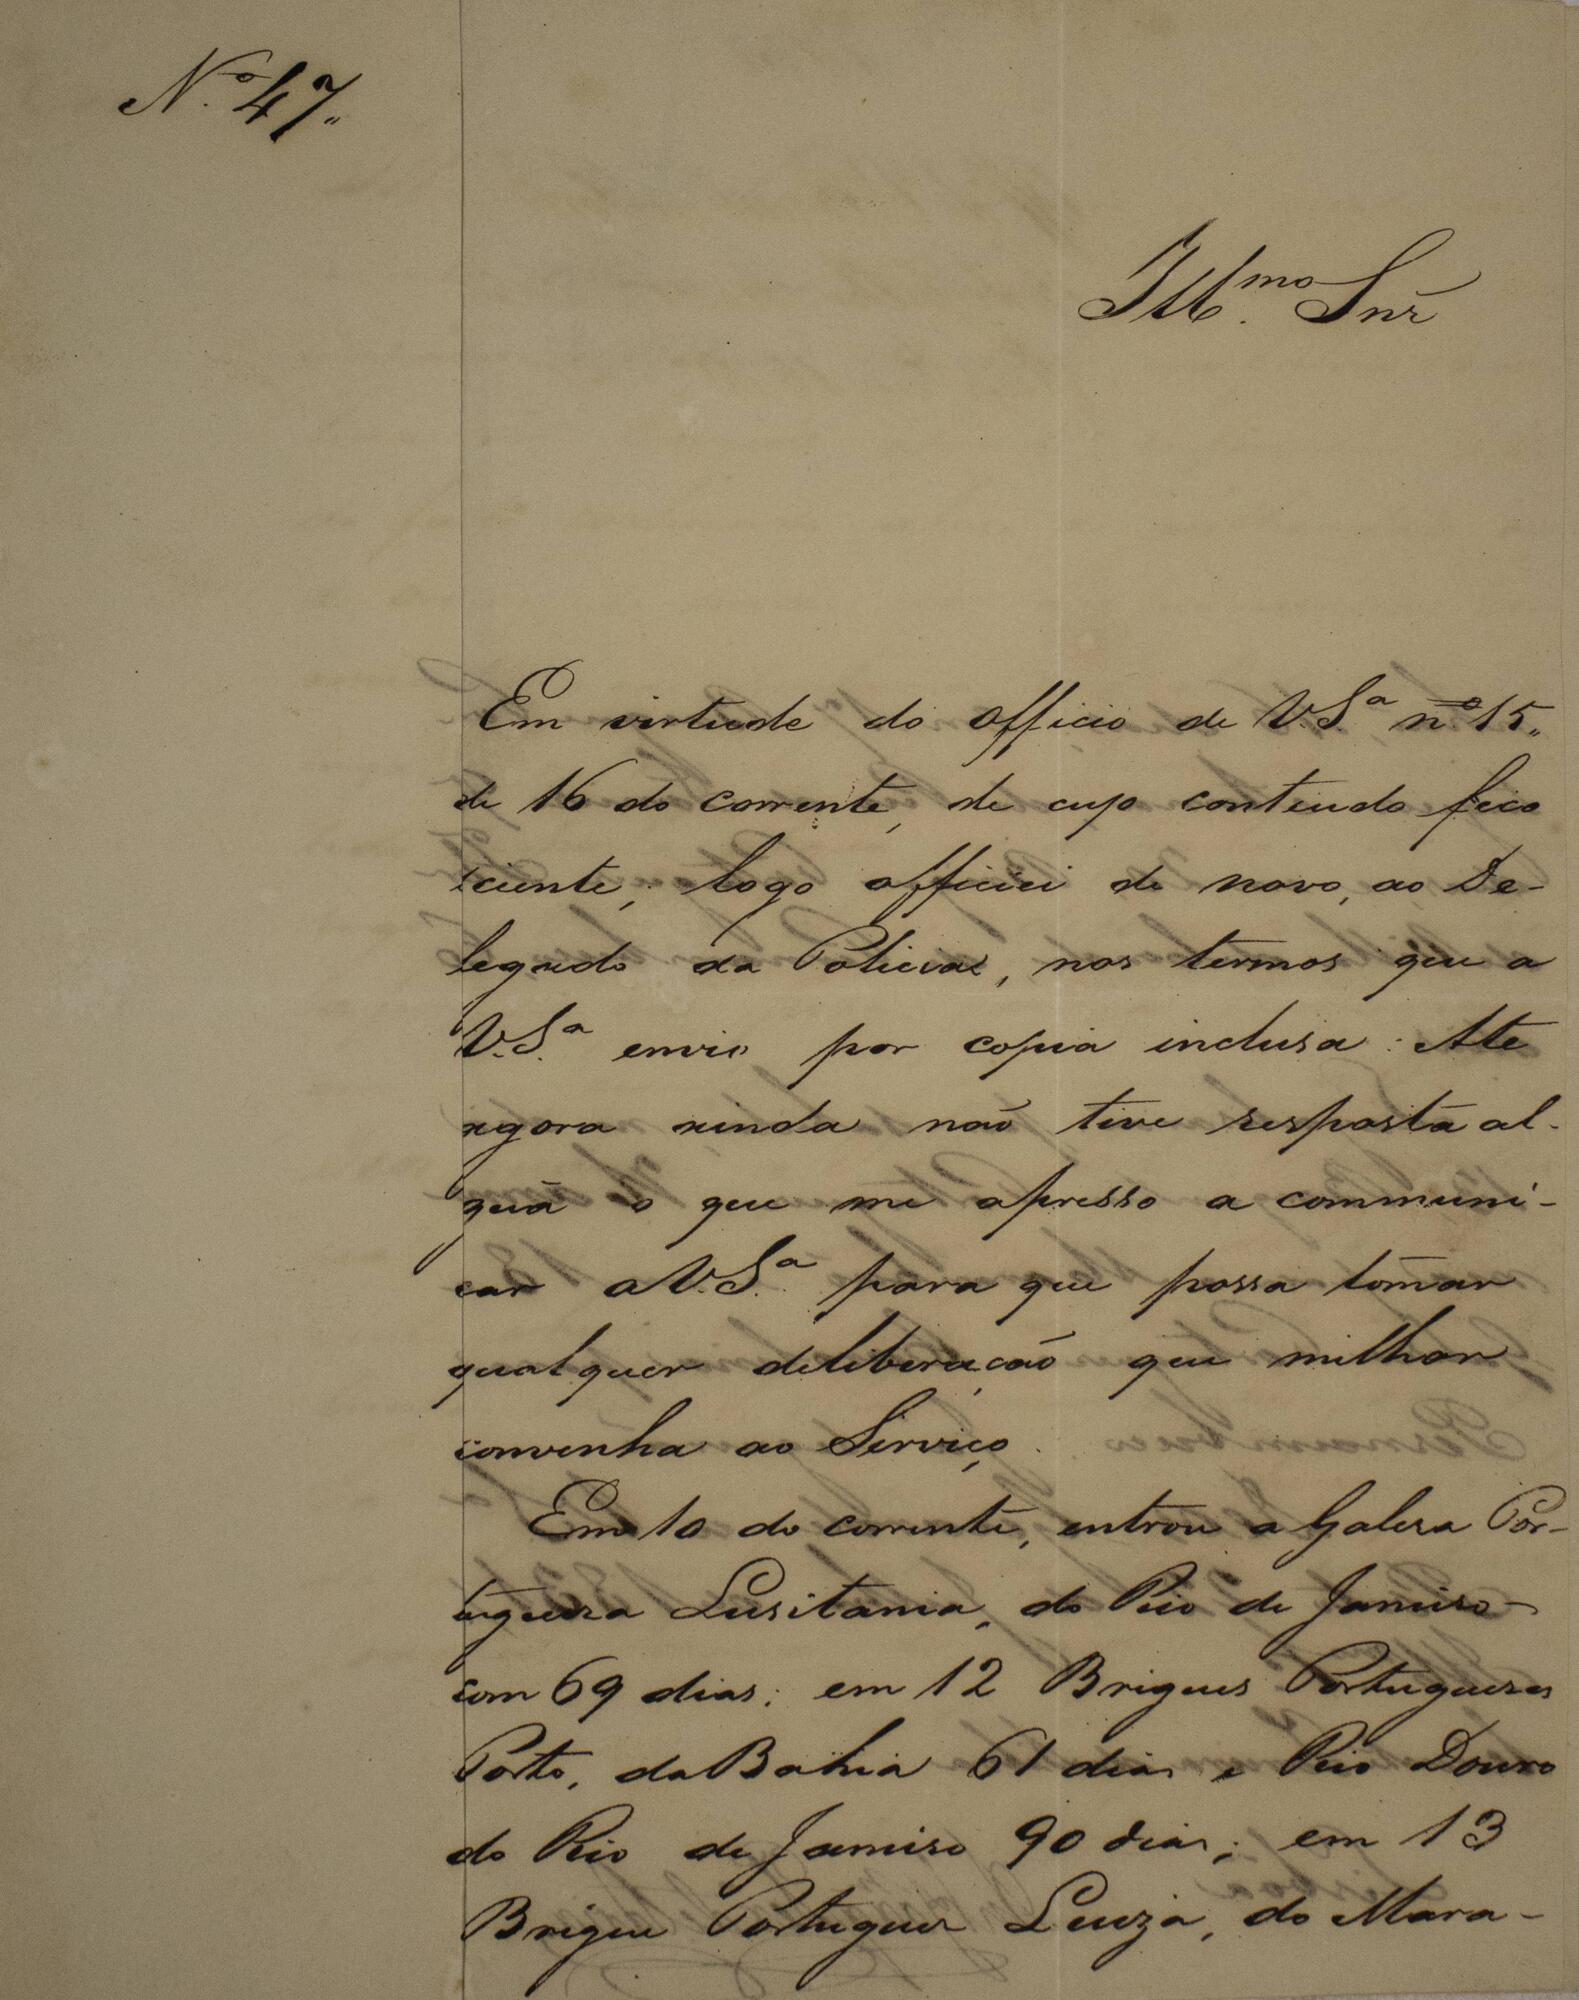 Nº 47.
Illmo. Snr
Em virtude do officio de V.Sª nº 15.
de 16 do corrente, de cujo conteudo fico
sciente, logo officiei de novo, ao De-
legado da Policia, nos termos que a
V.Sª envio por copia inclusa: Ate
agora ainda não tive resposta al-
guã o que me apresso a communi-
car a V.Sª para que possa tomar
qualquer deliberação que milhor
convenha ao Serviço.
Em 10 do corrente, entrou a Galera Por-
tugueza Lusitania, do Rio de Janeiro
com 69 dias: em 12 Brigues Portuguezes
Porto, da Bahia 61 dias e Rio Douro
do Rio de Janeiro 90 dias; em 13
Brigue Portuguez Luiza, do Mara-